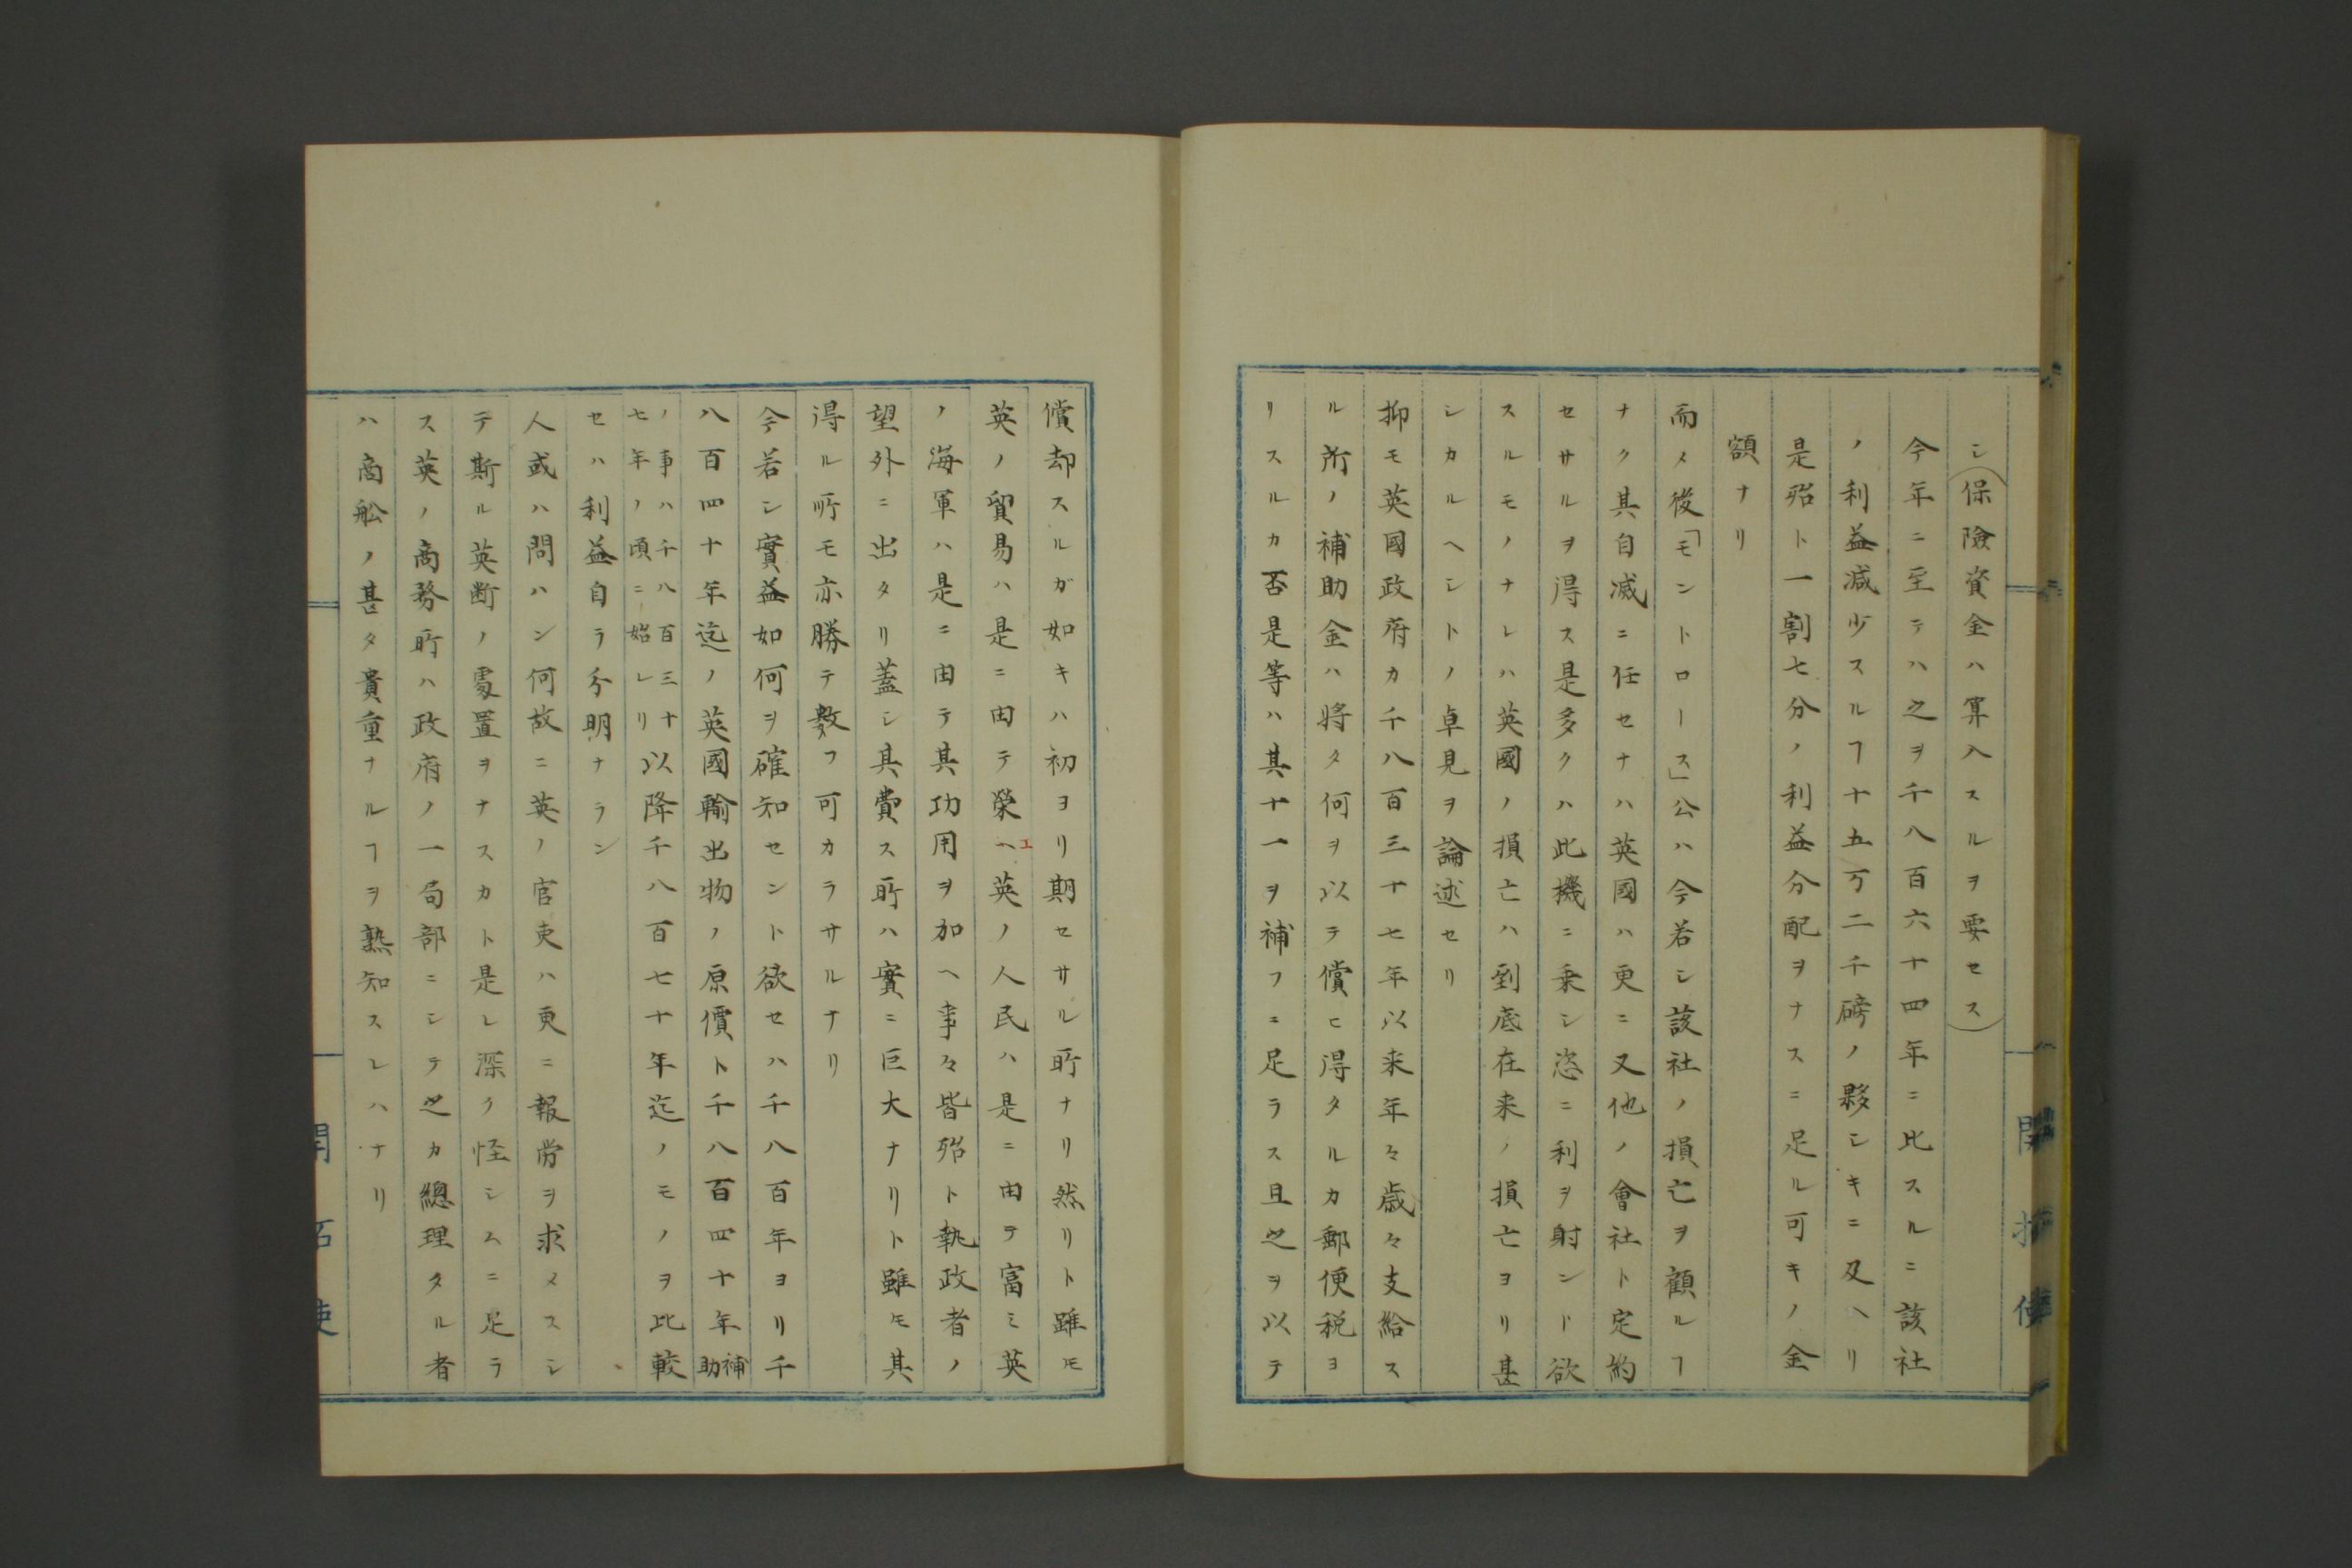 シ(保險資金ハ算入スルヲ要セス)
今年ニ至テハ之ヲ千八百六十四年ニ比スルニ該社
ノ利益減少スルヿ十五万二千磅ノ夥シキニ及ヘリ
是殆ト一割七分ノ利益分配ヲナスニ足ル可キノ金
額ナリ
而メ後「モントローズ」公ハ今若シ該社ノ損亡ヲ顧ルヿ
ナク其自滅ニ任セナハ英國ハ更ニ又他ノ會社ト定約
セサルヲ得ス是多クハ此機ニ乗シ恣ニ利ヲ射ント欲
スルモノナレハ英國ノ損亡ハ到底在来ノ損亡ヨリ甚
シカルヘシトノ卓見ヲ論述セリ
抑モ英國政府カ千八百三十七年以来年々歳々支給ス
ル所ノ補助金ハ将タ何ヲ以テ償ヒ得タルカ郵便税ヨ
リスルカ否是等ハ其十一ヲ補フニ足ラス且之ヲ以テ
開拓使
償却スルガ如キハ初ヨリ期セサル所ナリ然リト雖𪜈
英ノ貿易ハ是ニ由テ榮ヘエ英ノ人民ハ是ニ由テ富ミ英
ノ海軍ハ是ニ由テ其功用ヲ加ヘ事々皆殆ト執政者ノ
望外ニ出タリ蓋シ其費ス所ハ實ニ巨大ナリト雖𪜈其
得ル所モ亦勝テ数フ可カラサルナリ
今若シ實益如何ヲ確知セント欲セハ千八百年ヨリ千
八百四十年迄ノ英國輸出物ノ原價ト千八百四十年補助
ノ事ハ千八百三十七年ノ頃ニ始レリ以降千八百七十年迄ノモノヲ比較
セハ利益自ラ分明ナラン
人或ハ問ハン何故ニ英ノ官吏ハ更ニ報労ヲ求メスシ
テ斯ル英断ノ處置ヲナスカト是レ深ク怪シムニ足ラ
ス英ノ商務所ハ政府ノ一局部ニシテ之カ總理タル者
ハ商舩ノ甚タ貴重ナルヿヲ熟知スレハナリ
開拓使